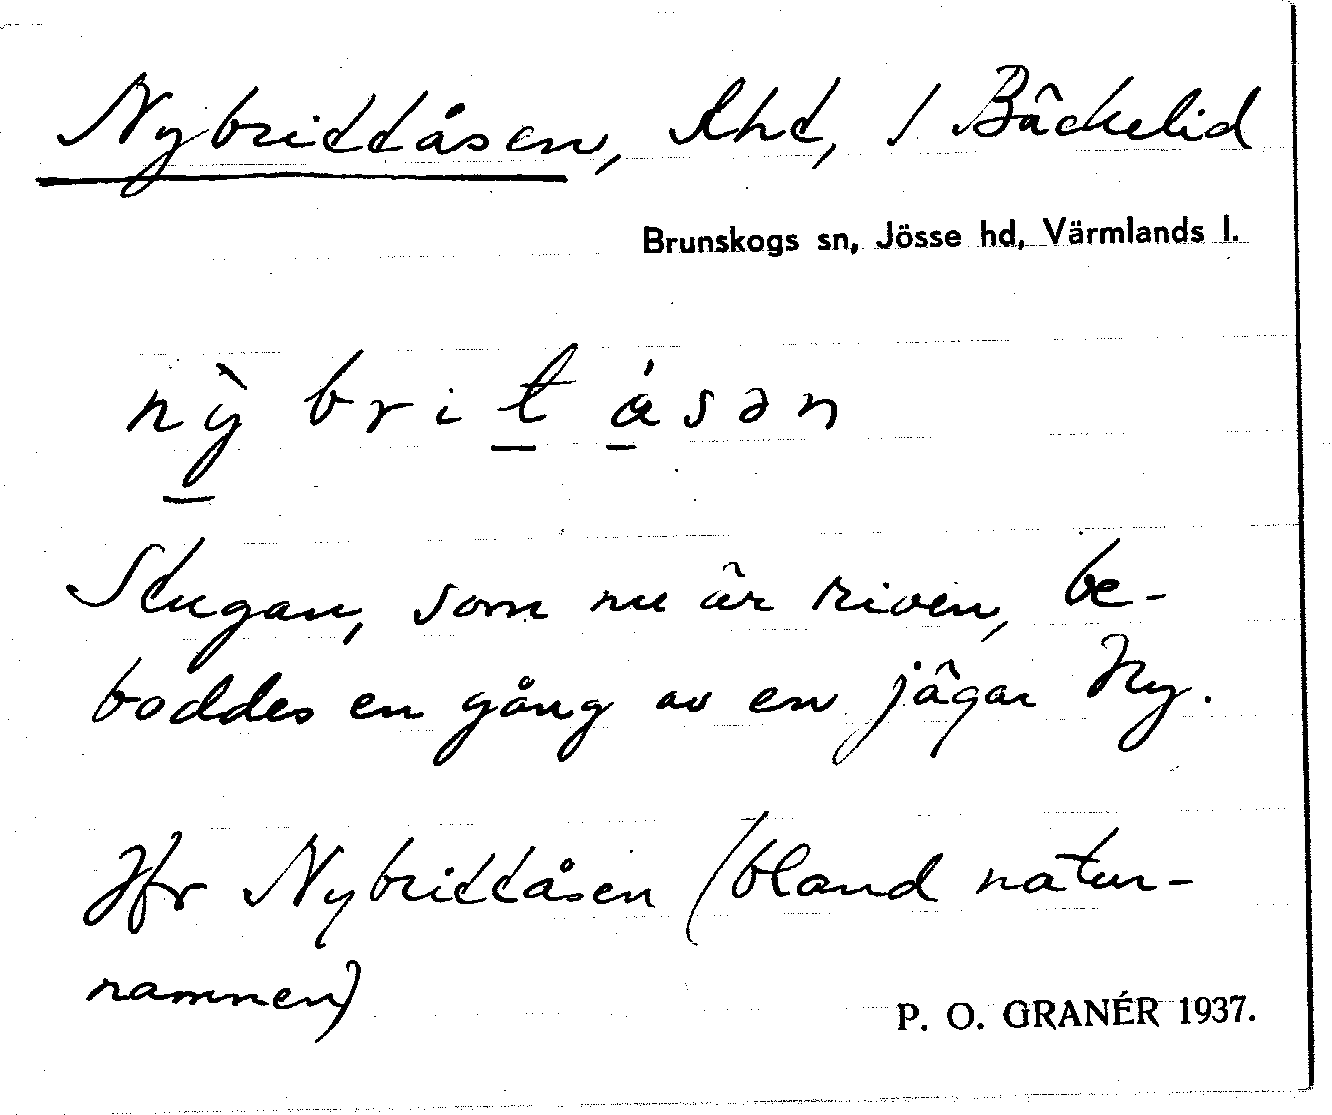 Nybrittåsen, lht, / Bäckelid
Brunskogs sn, Jösse hd, Värmlands l.
nỳbritåsən
Stugan, som nu är riven, be-
boddes en gång av en jägar Ny.
Jfr Nybrittåsen (bland natur-
namnen)
P. O. GRANÉR 1937.